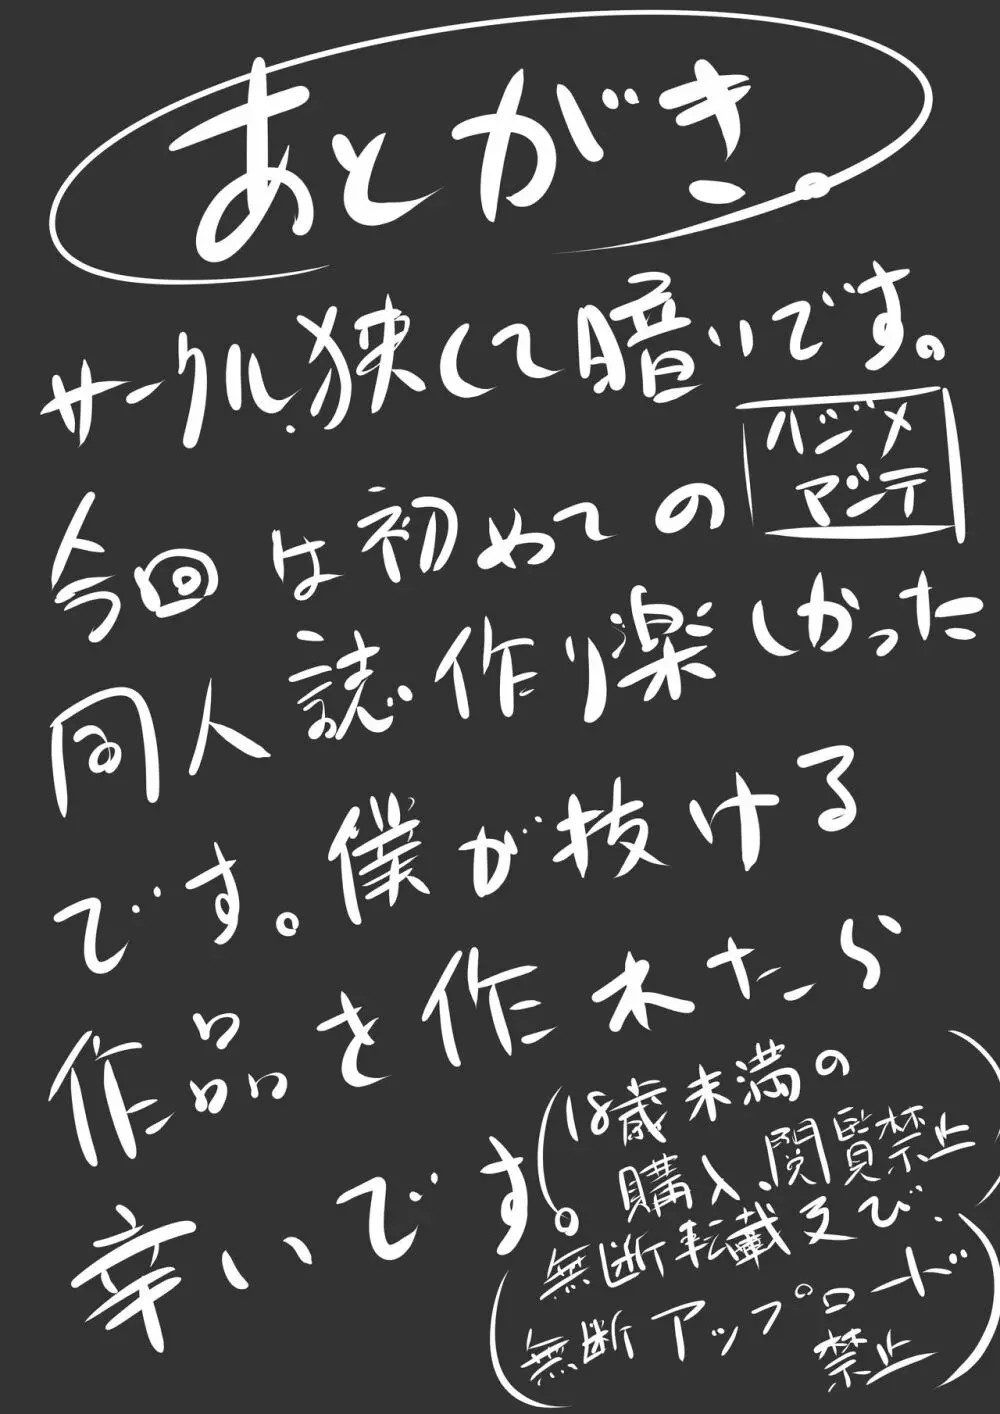 あとがき。
サークル.狭くて暗いです。
ハジメ
マシテ
今回は初めての
同人誌作り楽しかった
です。僕が抜ける
作品を作れたら
幸いです。
(18歳未満の
購入.閲覧禁止)
(無断転載及び.
無断アップロード
禁止)